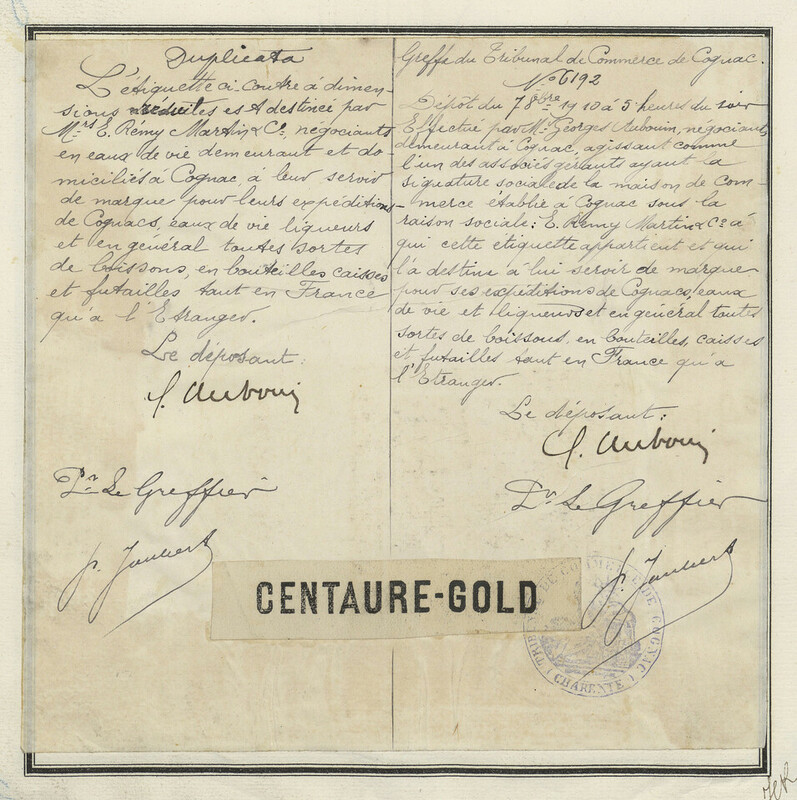 Duplicata
L'étiquette ci-contre à dimen-
sions réduites est destinée par
Mrs E. Remy Martin & Co, négociants
en eaux de vie demeurant et do-
miciliés à Cognac, à leur servir
de marque pour leurs expéditions
de Cognacs, eaux de vie liqueurs
et en général toutes sortes
de boissons, en bouteilles, caisses
et futailles, tant en France
qu'à l'Etranger.
Le déposant:
G. Aubouin
Pr Le Greffier
Greffe du Tribunal de Commerce de Cognac.
No 6192
Dépôt du 7 8bre 1910 à 5 heures du soir
Effectué par Mr Georges Aubouin, négociant,
demeurant à Cognac, agissant comme
l'un des associés gérants ayant la
signature sociale de la maison de Com-
merce établie à Cognac sous la
raison sociale: E. Remy Martin & Co à
qui cette étiquette appartient et qui
l'a destine à lui servir de marque
pour ses expéditions de Cognacs, eaux
de vie et liqueurs et en général toutes
sortes de boissons, en bouteilles, caisses
et futailles tant en France qu'à
l'Etranger.
Le déposant:
G. Aubouin
Pr Le Greffier
CENTAURE-GOLD
TRIBUNAL DE COMMERCE DE COGNAC
(CHARENTE)